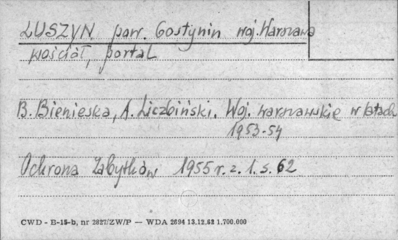 ŁUSZYN pow. Gostynin woj. Warszawa
kościół, portal
B. Bienieska, A. Liczbiński. Woj. warszawskie w latach
1953-54
Ochrona Zabytków 1955 r. z. 1. s. 62
CWD - B-15-b, nr 2827/ZW/P — WDA 2694 13.12.62 1.700.000